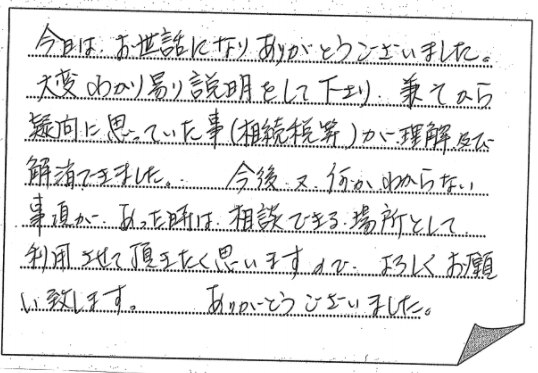 今日は、お世話になりありがとうございました。
大変わかり易い説明をして下さり、兼てから
疑問に思っていた事(相続税等)が、理解及び
解消できました。 今後、又、何か、わからない
事項が、あった時は、相談できる場所として
利用させて頂きたく思いますので、よろしくお願
い致します。 ありがとうございました。